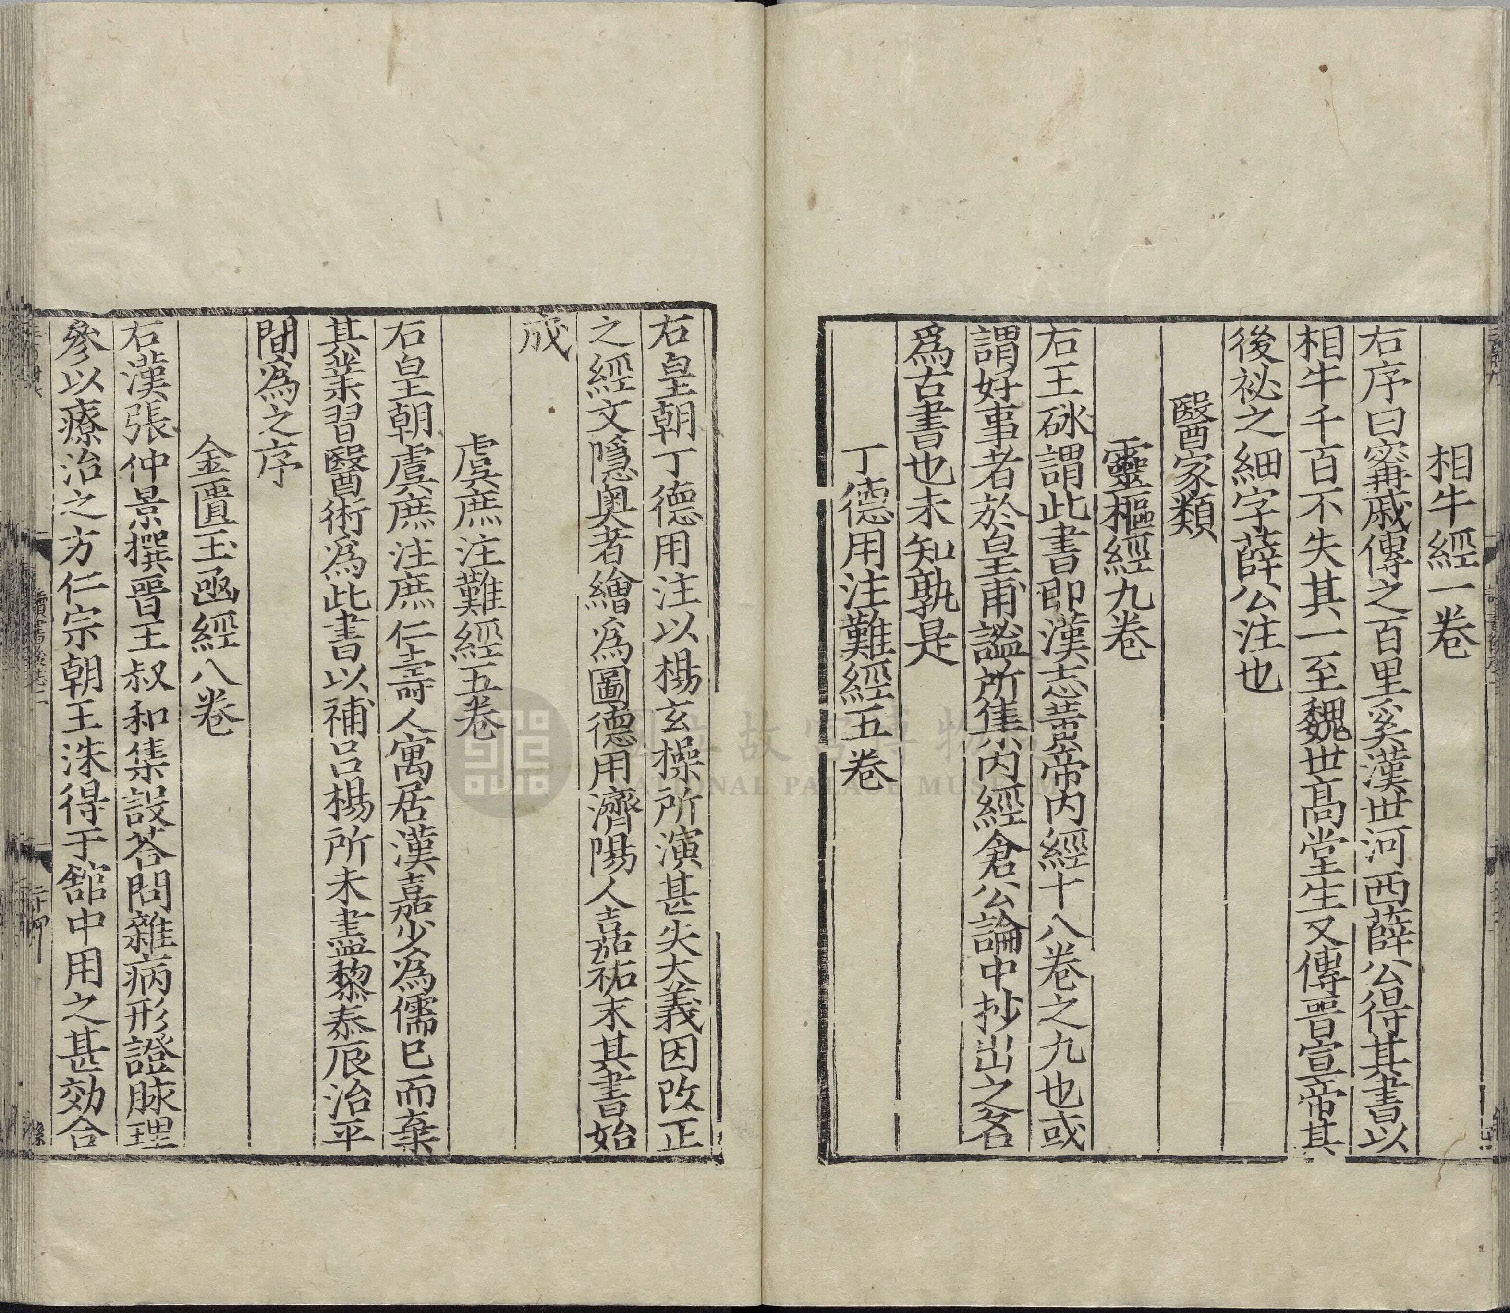 相牛經一卷
右序曰甯戚傳之百里奚漢世河西薛公得其書以
相牛千百不失其一至魏世髙堂生又傳晉宣帝其
後祕之細字薛公注也
醫家類
靈樞經九卷
右王砅謂此書即漢志黃帝內經十八卷之九也或
謂好事者於皇甫謐所集內經倉公論中抄出之名
爲古書也未知孰是
丁德用注難經五卷
右皇朝丁德用注以楊玄操所演甚失大義因改正
之經文隱奥者繪爲圖德用濟陽人嘉祐末其書始
成
虞庶注難經五卷
右皇朝虞庶注庶仁壽人寓居漢嘉少為儒已而棄
其業習醫術爲此書以補呂楊所未盡黎泰辰治平
間為之序
金匱玉函經八卷
右漢張仲景撰晉王叔和集設荅問雜病形證脉理
參以療治之方仁宗朝王洙得于舘中用之甚効合
讀書後志二
國立故宮博物院
NATIONAL PALACE MUSEUM